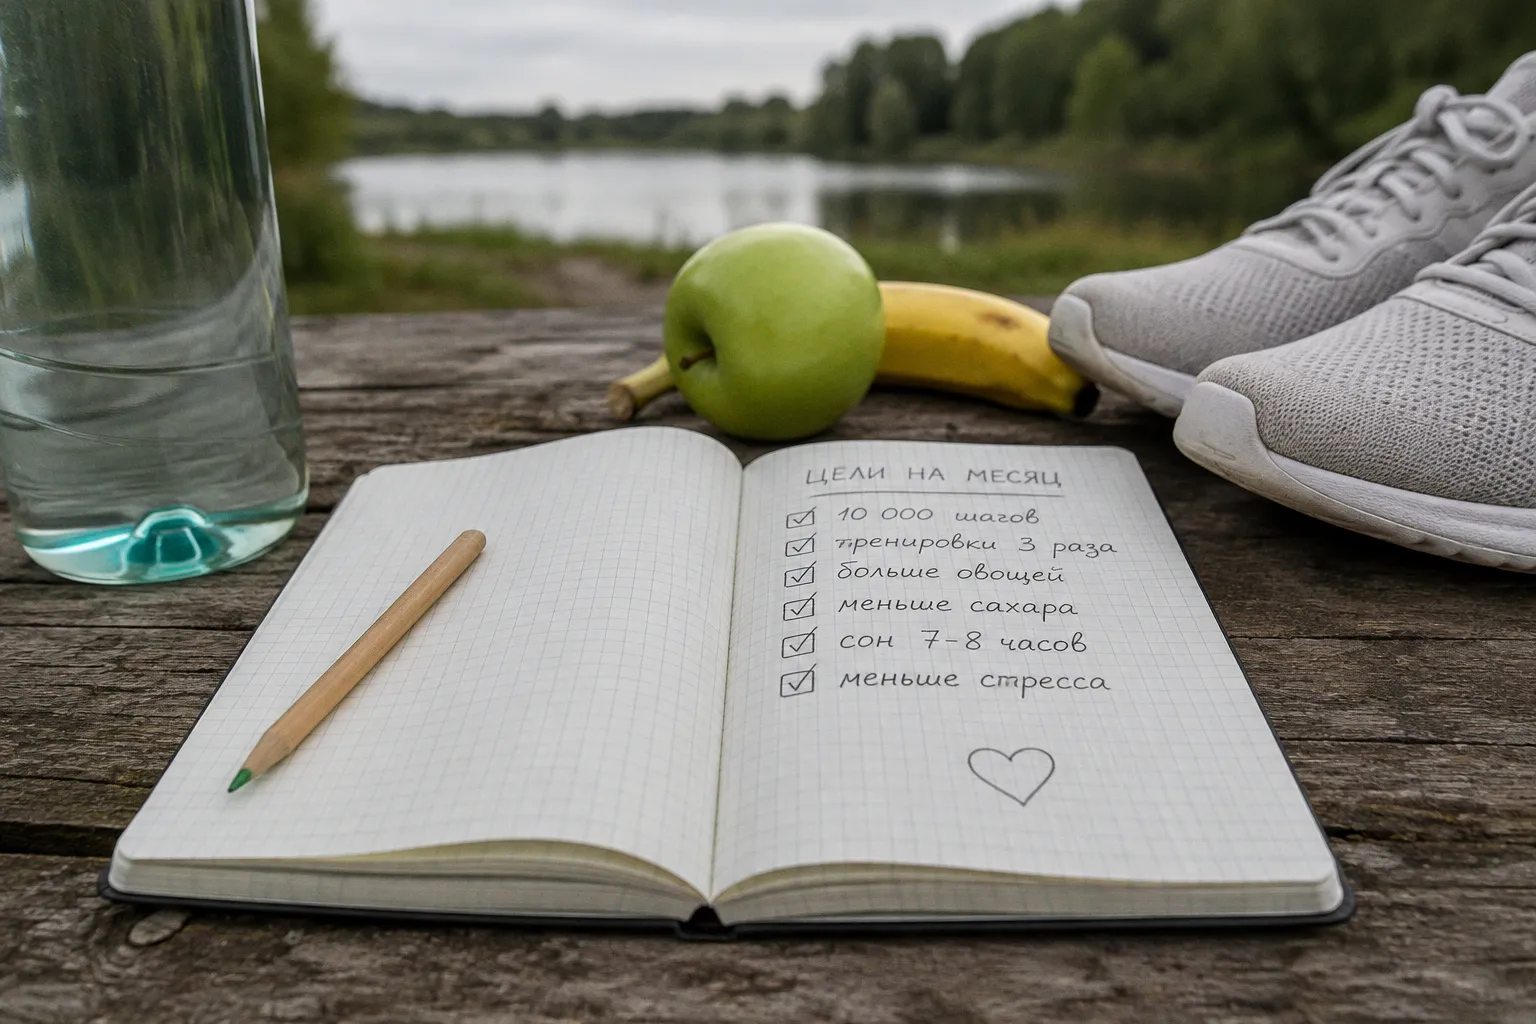 ЦЕЛИ НА МЕСЯЦ
10 000 шагов
тренировки 3 раза
больше овощей
меньше сахара
сон 7-8 часов
меньше стресса